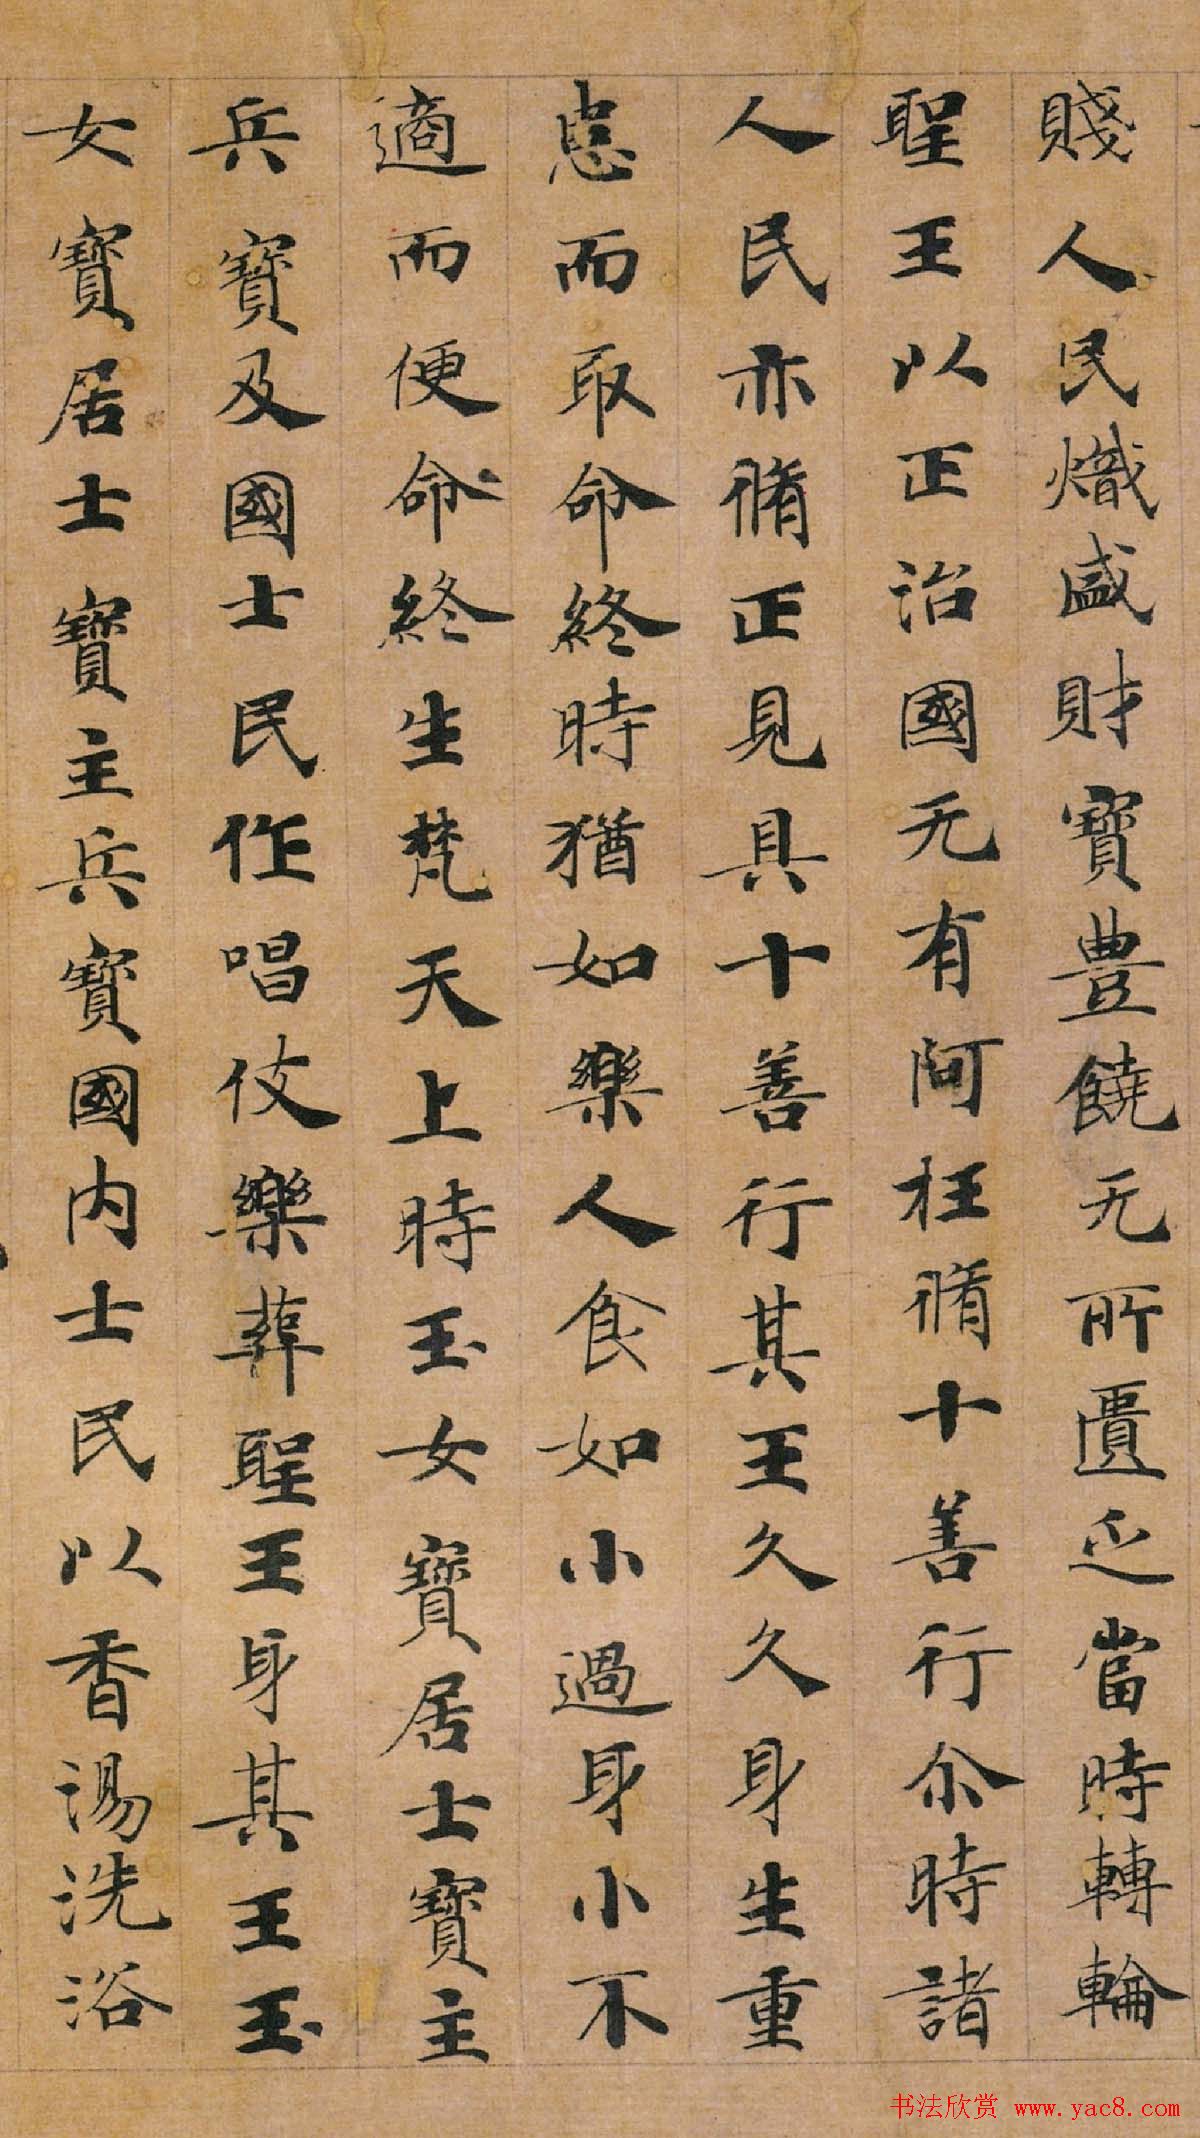 賤人民熾盛財寶豊饒无所匱乏當時轉輪
聖王以正治國无有阿枉脩十善行尒時諸
人民亦脩正見具十善行其王久久身生重
患而取命終時猶如樂人食如小過身小不
適而便命終生梵天上時玉女寶居士寶主
兵寶及國士民作唱伎樂葬聖王身其王玉
女寶居士寶主兵寶國内士民以香湯洗浴
书法欣赏 www.yac8.com